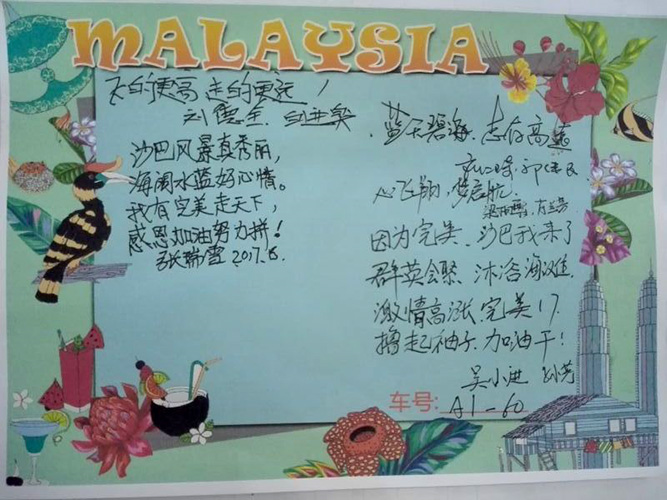 MALAYSIA
飞的更高 走的更远！
沙巴风景真秀丽，
海阔水蓝好心情。
我有完美走天下，
感恩加油努力拼！
张 雪 2017.6.
蓝天碧海、志存高远
心飞翔，梦启航。
因为完美、沙巴我来了
群英会聚、沐浴海滩
激情高涨、完美17
撸起袖子 加油干！
吴小进
车号: A1-60